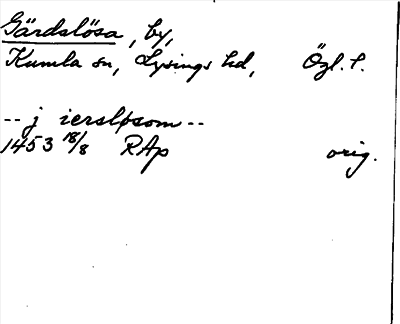 Gärdslösa, by,
Kumla sn, Lysings hd, Ögl. l.
-- j iersløsom --
1453 18/8 RAp orig.